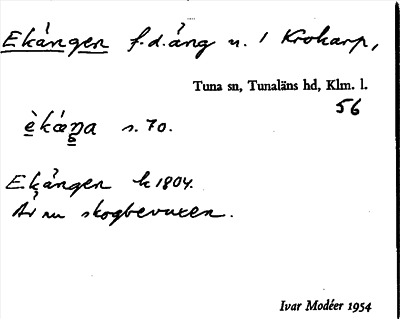 Ekången f.d. äng n. 1 Krokarp,
Tuna sn, Tunaläns hd, Klm. l.
56
s. 70.
Ekången k 1804.
Är nu skogbevuxen.
Ivar Modéer 1954